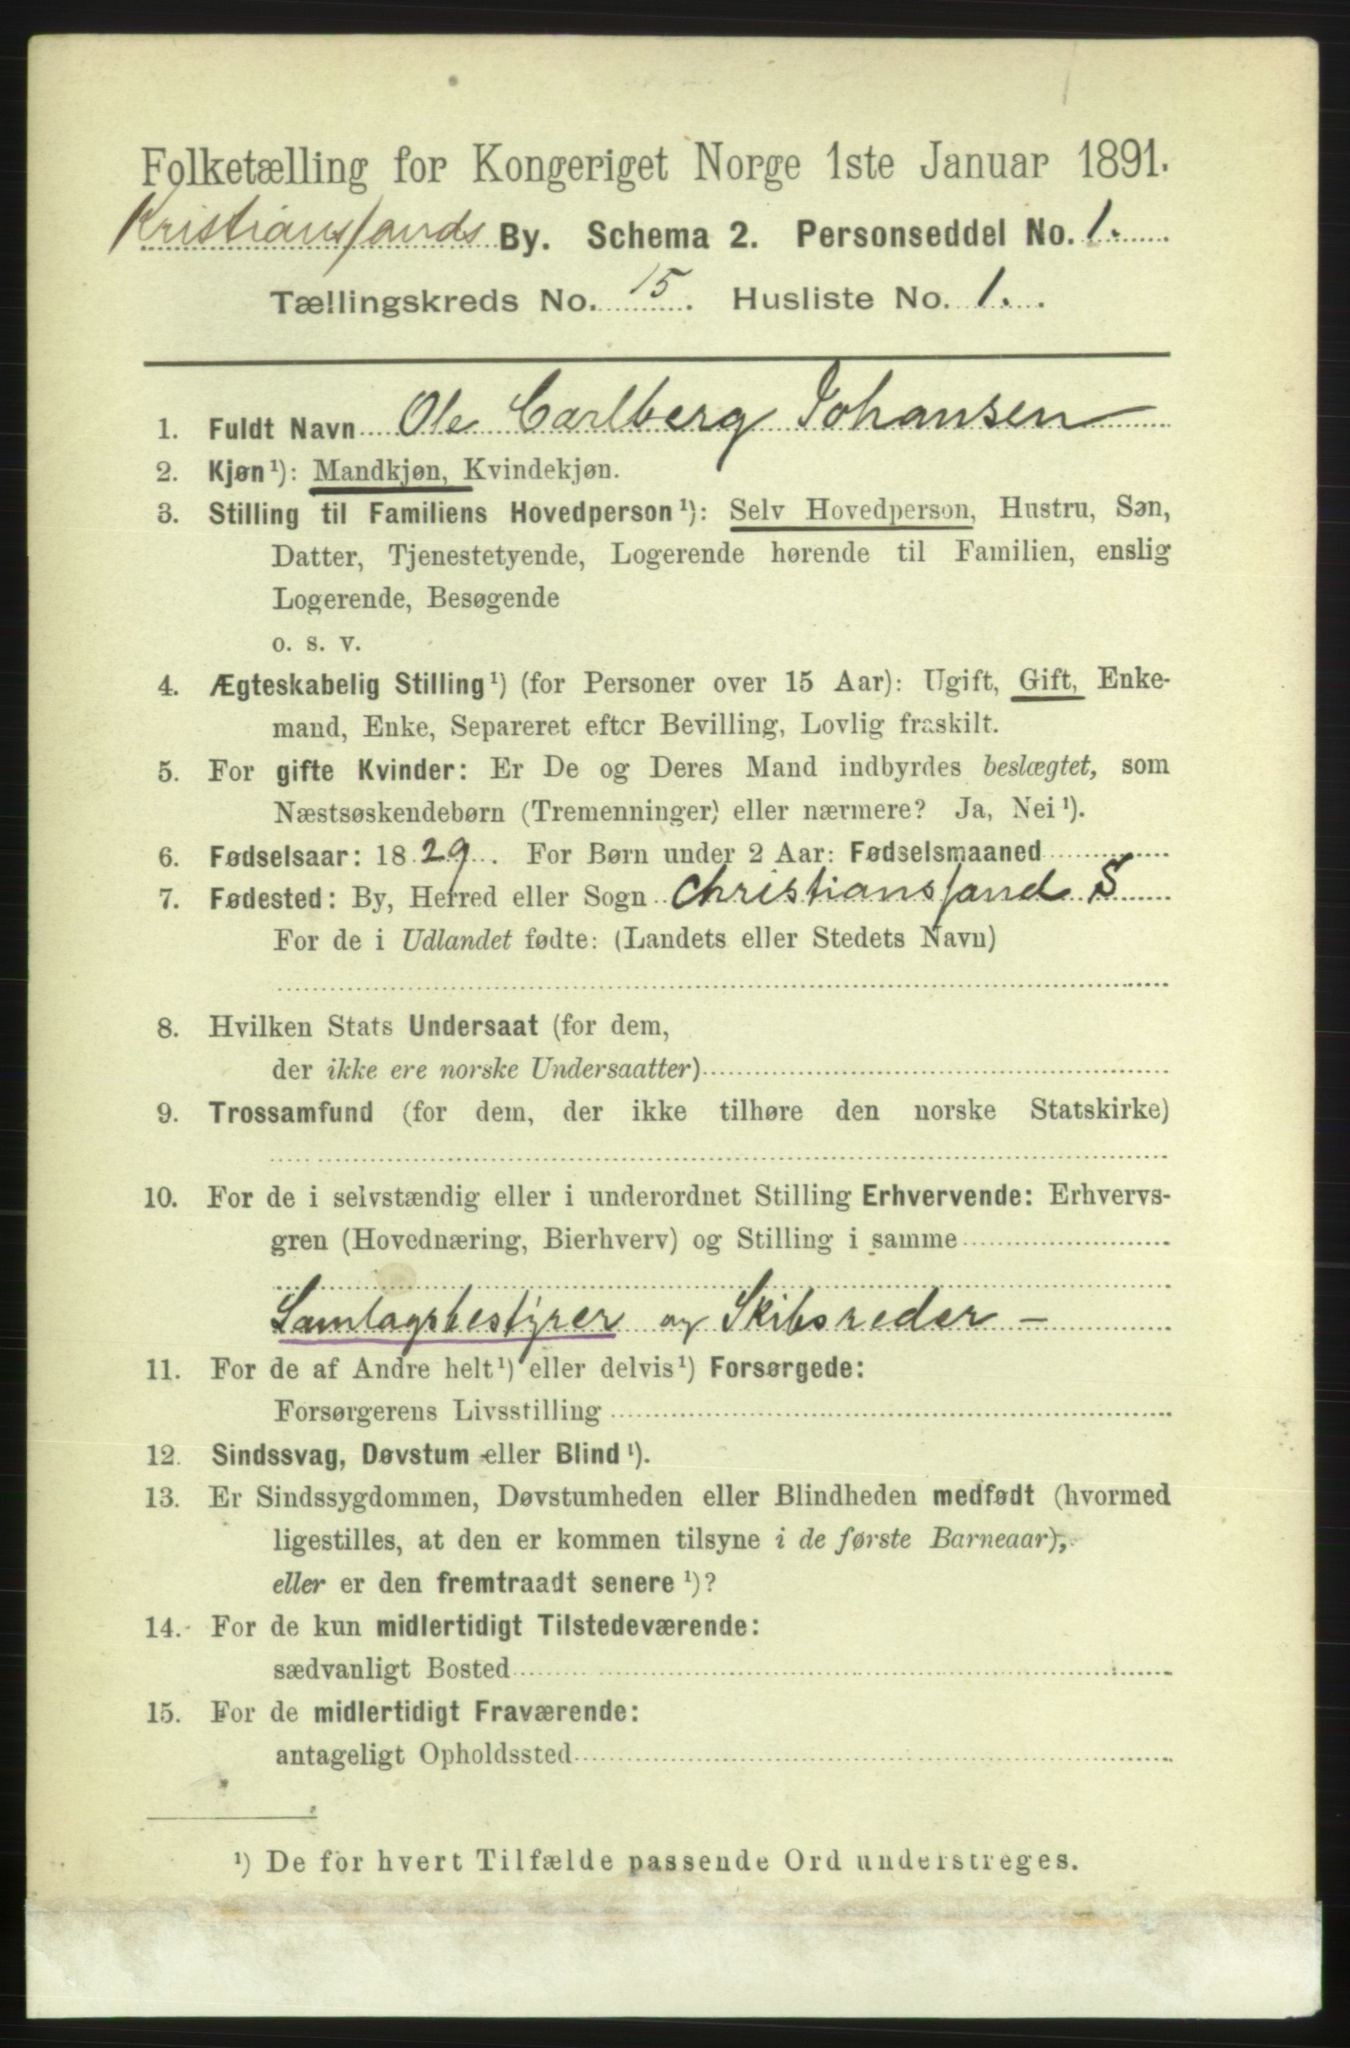 Folketælling for Kongeriget Norge 1ste Januar 1891.
Kristianssands By. Schema 2. Personseddel No. 1.
Tællingskreds No. 15. Husliste No. 1.
1. Fuldt Navn Ole Carlberg Johansen
2. Kjøn ¹): Mandkjøn, Kvindekjøn.
3. Stilling til Familiens Hovedperson ¹): Selv Hovedperson, Hustru, Søn,
Datter, Tjenestetyende, Logerende hørende til Familien, enslig
Logerende, Besøgende
o. s. v.
4. Ægteskabelig Stilling ¹) (for Personer over 15 Aar): Ugift, Gift, Enke-
mand, Enke, Separeret efter Bevilling, Lovlig fraskilt.
5. For gifte Kvinder: Er De og Deres Mand indbyrdes beslægtet, som
Næstsøskendebørn (Tremenninger) eller nærmere? Ja, Nei ¹).
6. Fødselsaar: 1829. For Børn under 2 Aar: Fødselsmaaned
7. Fødested: By, Herred eller Sogn Christianssand S
For de i Udlandet fødte: (Landets eller Stedets Navn)
8. Hvilken Stats Undersaat (for dem,
der ikke ere norske Undersaatter)
9. Trossamfund (for dem, der ikke tilhøre den norske Statskirke)
10. For de i selvstændig eller i underordnet Stilling Erhvervende: Erhvervs-
gren (Hovednæring, Bierhverv) og Stilling i samme
Samlagsbestyrer og Skibsreder –
11. For de af Andre helt ¹) eller delvis ¹) Forsørgede:
Forsørgerens Livsstilling
12. Sindssvag, Døvstum eller Blind ¹).
13. Er Sindssygdommen, Døvstumheden eller Blindheden medfødt (hvormed
ligestilles, at den er kommen tilsyne i de første Barneaar),
eller er den fremtraadt senere ¹)?
14. For de kun midlertidigt Tilstedeværende:
sædvanligt Bosted
15. For de midlertidigt Fraværende:
antageligt Opholdssted
¹) De for hvert Tilfælde passende Ord understreges.